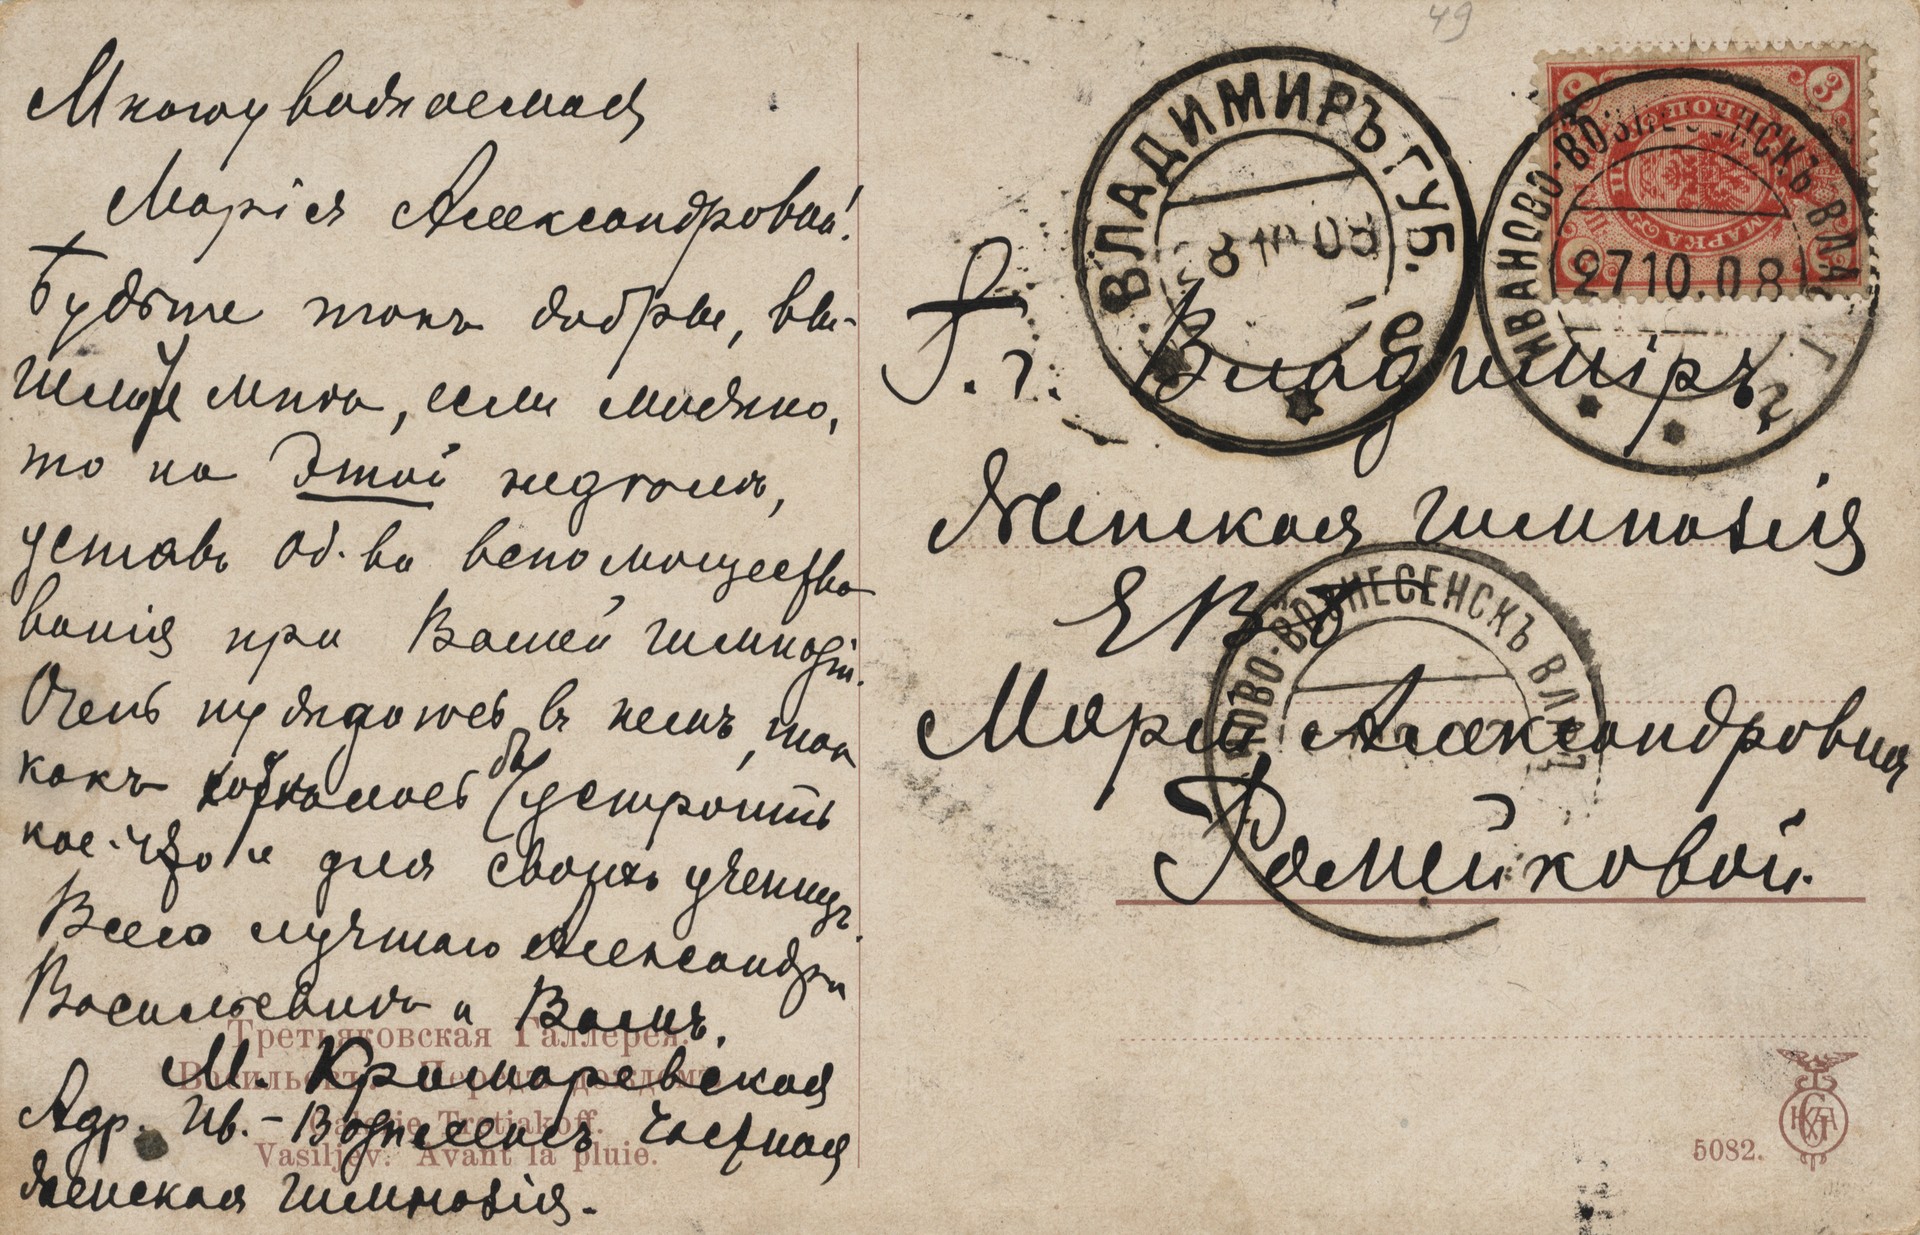 Многоуважаемая
Марія Александровна!
Будьте такъ добры, вы-
шлите мнѣ, если можно,
то на этой недѣлѣ,
уставъ Об-ва вспомощество
ванія при Вашей гимназіи.
Очень нуждаюсь въ немъ, так
какъ хотѣлось бы устроить
кое-что и для своихъ ученицъ.
Всего лучшаго Александру
Васильевичу и Вамъ.
М. Крамаревская
Адр. Ив.-Вознесенскъ Частная
женская гимназія.
Третьяковская Галлерея.
Васильевъ. Передъ дождемъ.
Galerie Tretiakoff.
Vasiljev. Avant la pluie.
49
ВЛАДИМИРЪ ГУБ.
8 10 08
3
МАРКА
ИВАНОВО-ВОЗНЕСЕНСКЪ ВЛАД. Г.
27 10.08
г. Владиміръ
Женская гимназія
ЕВБ
ИВАНОВО-ВОЗНЕСЕНСКЪ ВЛАД
Марія Александровна
Рамейковой.
5082.